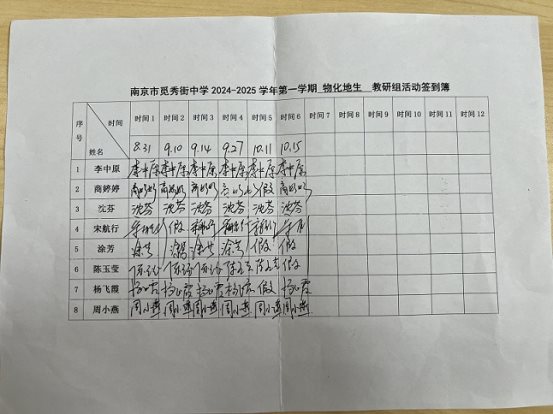 南京市觅秀街中学 2024-2025 学年第一学期 物化地生 教研组活动签到簿
序号 时间 姓名 时间 1 时间 2 时间 3 时间 4 时间 5 时间 6 时间 7 时间 8 时间 9 时间 10 时间 11 时间 12
8.31 9.10 9.14 9.27 10.11 10.15
1 李中原 李中原 李中原 李中原 李中原 李中原 李中原
2 商婷婷 商婷婷 商婷婷 商婷婷 假 商婷婷
3 沈芬 沈芬 沈芬 沈芬 沈芬 沈芬 沈芬
4 宋航行 假
5 涂芳 涂芳 涂芳 涂芳 涂芳 假 假
6 陈玉莹 假
7 杨飞霞 假
8 周小燕 周小燕 周小燕 周小燕 周小燕 周小燕 周小燕